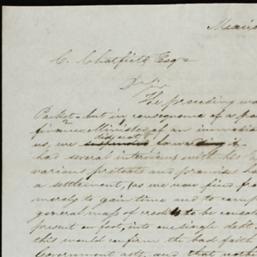 Mexico
C. Chatfield Esqr
Dr Sir
The preceding wa
Packet - but in consequence of a
finance Minister of an immedia
us, we
had several interviews with his
various protests and promises ha
a settlement, (as we now find from
merely to gain time and to comp
general mass of credits to be consol
present on foot, into one single debt
this would confirm the bad faith
Government acts, and that noth